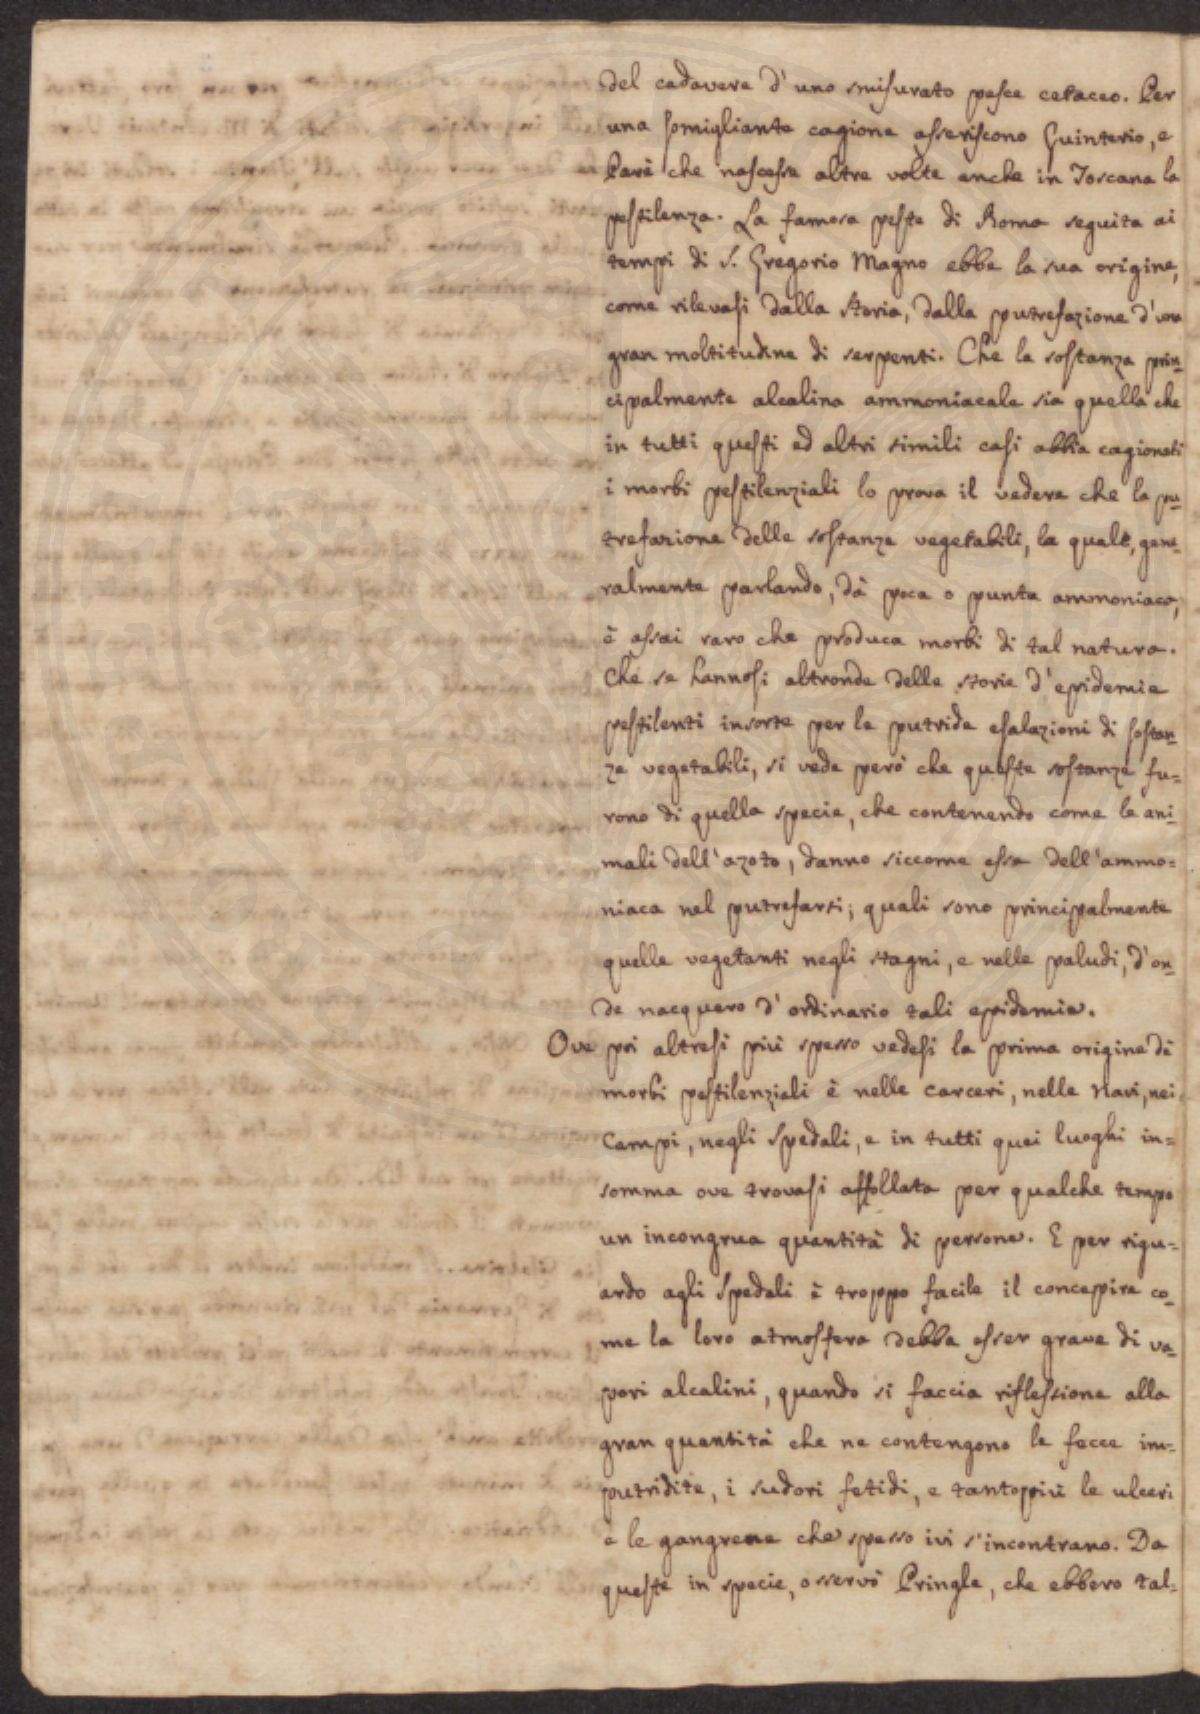 del cadavere d'uno smisurato pesce cetaceo. Per
una somigliante cagione asseriscono Guinterio, e
Parè che nascesse altre volte anche in Toscana la
pestilenza. La famosa peste di Roma seguita ai
tempi di S. Gregorio Magno ebbe la sua origine,
come rilevasi dalla storia, dalla putrefazione d'una
gran moltitudine di serpenti. Che la sostanza prin-
cipalmente alcalina ammoniacale sia quella che
in tutti questi ed altri simili casi abbia cagionati
i morbi pestilenziali lo prova il vedere che la pu-
trefazione delle sostanze vegetabili, la quale, gene-
ralmente parlando, dà poca o punta ammoniaca,
è assai raro che produca morbi di tal natura.
Che se hannosi altronde delle storie d'epidemie
pestilenti insorte per le putride esalazioni di sostan-
ze vegetabili, si vede però che queste sostanze fu=
rono di quella specie, che contenendo come le ani-
mali dell'azoto, danno siccome esse dell'ammo=
niaca nel putrefarsi; quali sono principalmente
quelle vegetanti negli stagni, e nelle paludi, d'on-
de nacquero d'ordinario tali epidemie.
Ove poi altresì più spesso vedesi la prima origine di
morbi pestilenziali è nelle carceri, nelle Navi, nei
Campi, negli Spedali, e in tutti quei luoghi in=
somma ove trovasi affollata per qualche tempo
un incongrua quantità di persone. E per rigu=
ardo agli Spedali è troppo facile il concepire co-
me la loro atmosfera debba esser grave di va-
pori alcalini, quando si faccia riflessione alla
gran quantità che ne contengono le fecce im=
putridite, i sudori fetidi, e tantoppiù le ulceri
e le gangrene che spesso ivi s'incontrano. Da
queste in specie, osservò Pringle, che ebbero tal=